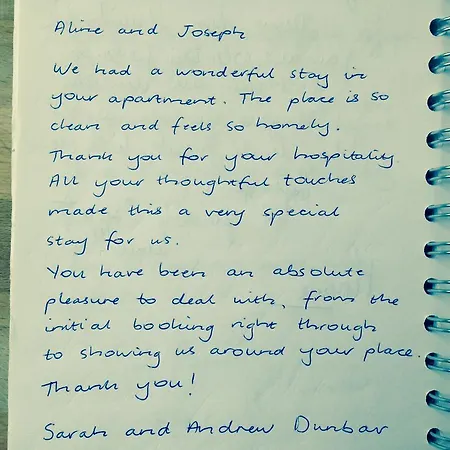 Aline and Joseph
We had a wonderful stay in
your apartment. The place is so
clean and feels so homely.
Thank you for your hospitality
All your thoughtful touches
made this a very special
stay for us.
You have been an absolute
pleasure to deal with, from the
initial booking right through
to showing us around your place.
Thank you!
Sarah and Andrew Dunbar